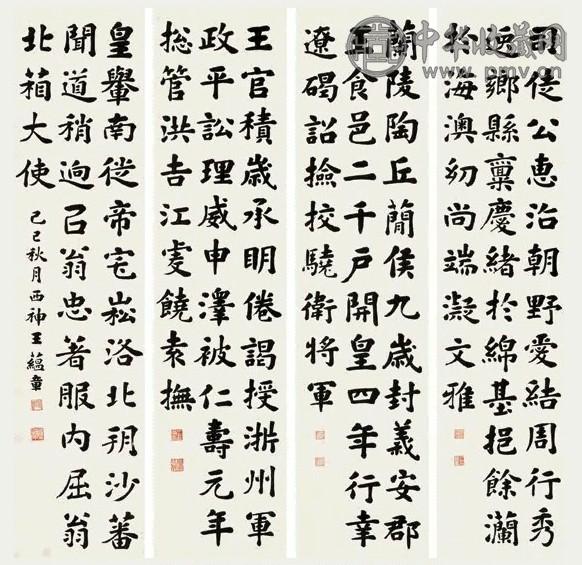 中华收藏网
www.pmv.cn
司徒公惠治朝野愛結周行秀
鄉縣稟慶緒於綿基挹餘瀾
於海澳幼尚端凝文雅
蘭陵陶丘簡侯九歲封義安郡
王食邑二千戶開皇四年行幸
遼碣詔撿挍驍衛將軍
王官積歲承明倦謁授浙州軍
政平訟理威申澤被仁壽元年
捴管洪吉江虔饒袁撫
皇轝南從帝宅崧洛北朔沙蕃
聞道稍逈召翁忠著服內屈翁
北葙大使
己巳秋月西神王蘊章